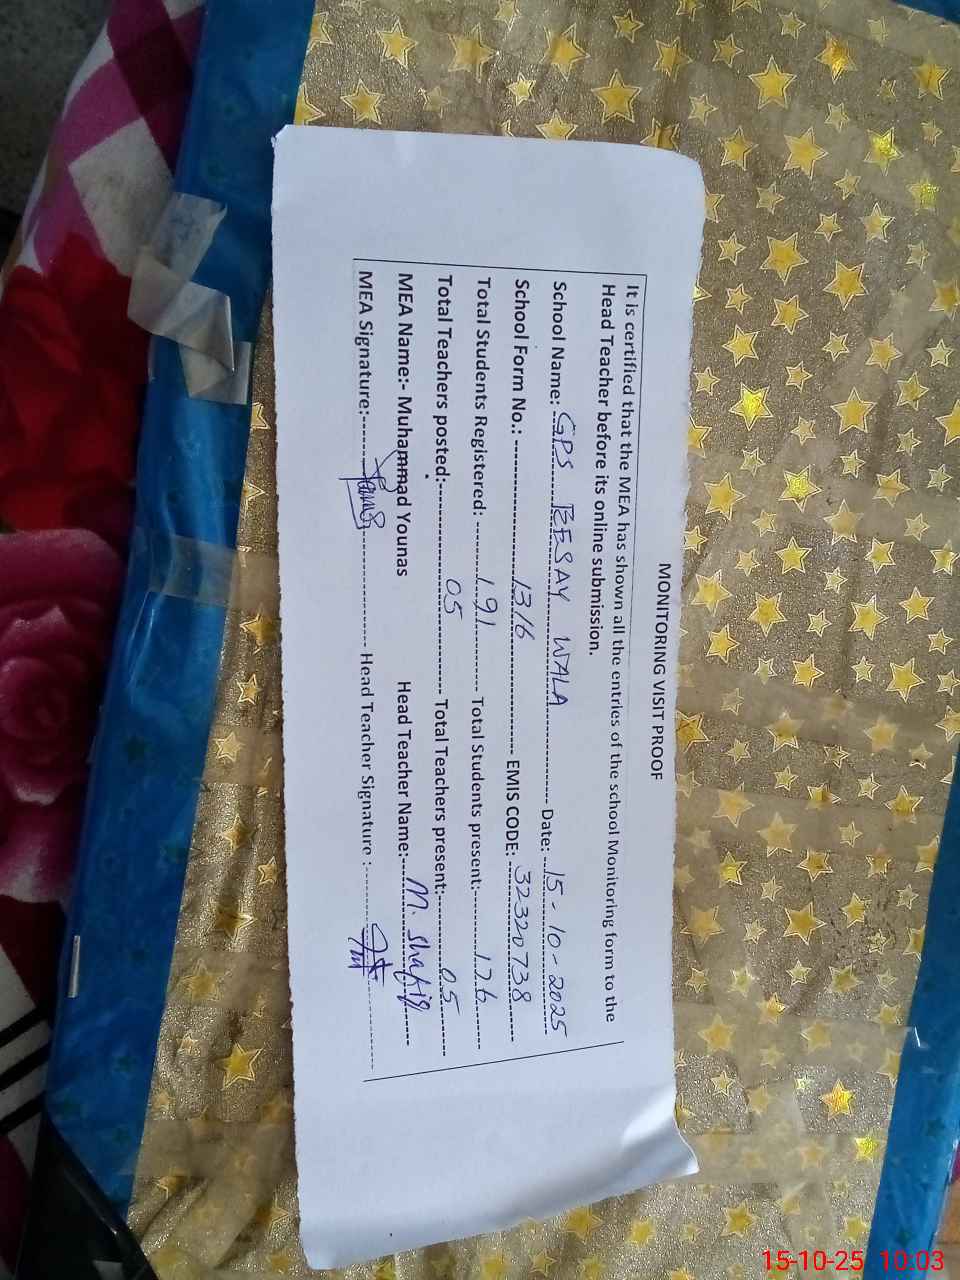 MONITORING VISIT PROOF
It is certified that the MEA has shown all the entries of the school Monitoring form to the
Head Teacher before its online submission.
School Name: GPS BESAY WALA Date: 15-10-2025
School Form No.: 1316 EMIS CODE: 32320738
Total Students Registered: 191 Total Students present: 176
Total Teachers posted: 05 Total Teachers present: 05
MEA Name:- Muhammad Younas Head Teacher Name: M. Shafiq
MEA Signature: Head Teacher Signature :
15-10-25 10:03